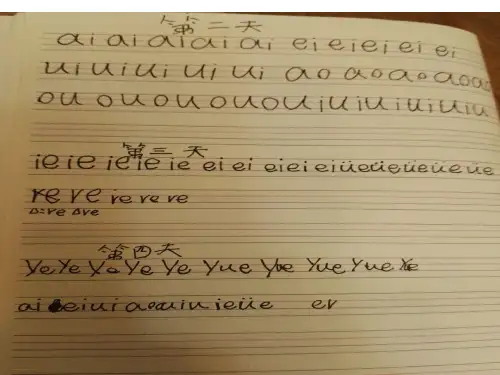 第二天
ai ai ai ai ai ei ei ei ei ei
ui ui ui ui ui ao ao ao ao ao
ou ou ou ou ou iu iu iu iu iu
第三天
ie ie ie ie ie ei ei ei ei ei üe üe üe üe üe
re re re re re
re re
第四天
Ye Ye Ye Ye Ye Yue Yue Yue Yue
ai ei ui ao ou iu ie üe er